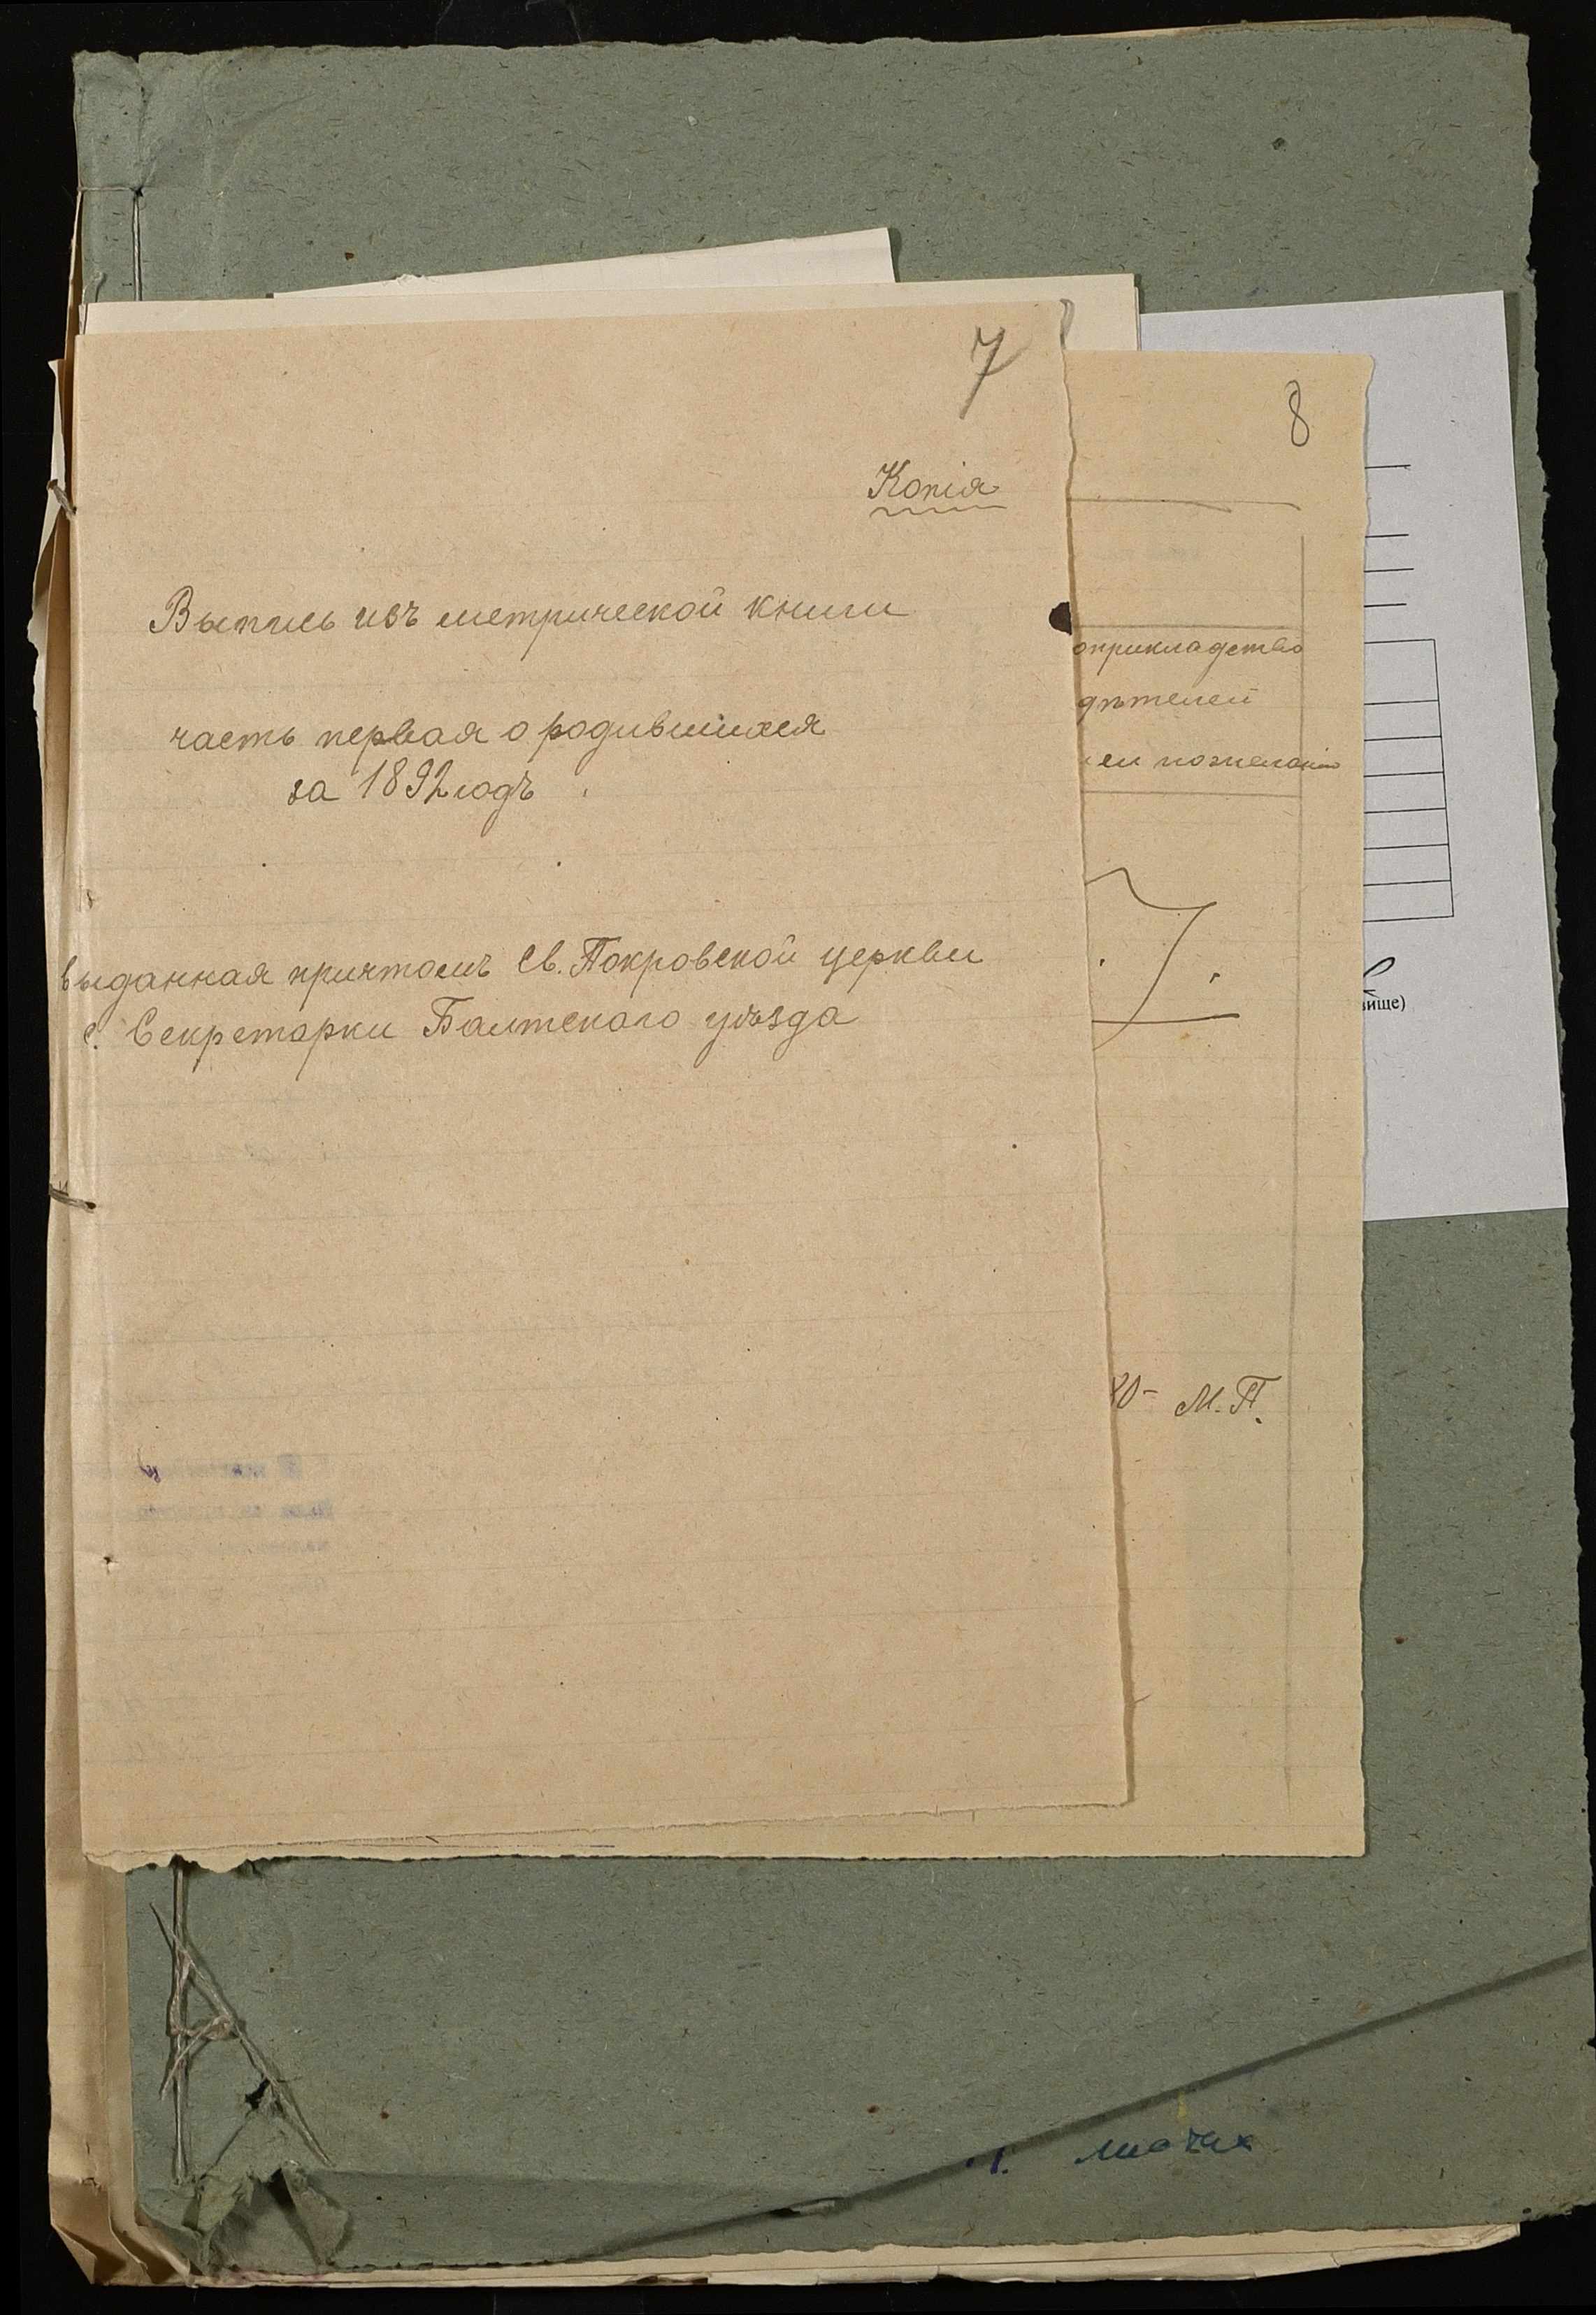 7
Копія
Выпись изъ метрической книги
часть первая о родившихся
за 1892 годъ
выданная причтомъ Св. Покровской церкви
с. Секретарки Балтскаго уѣзда
8
оприкладство
дѣтелей
по желанію
М.П.
вище)
листах